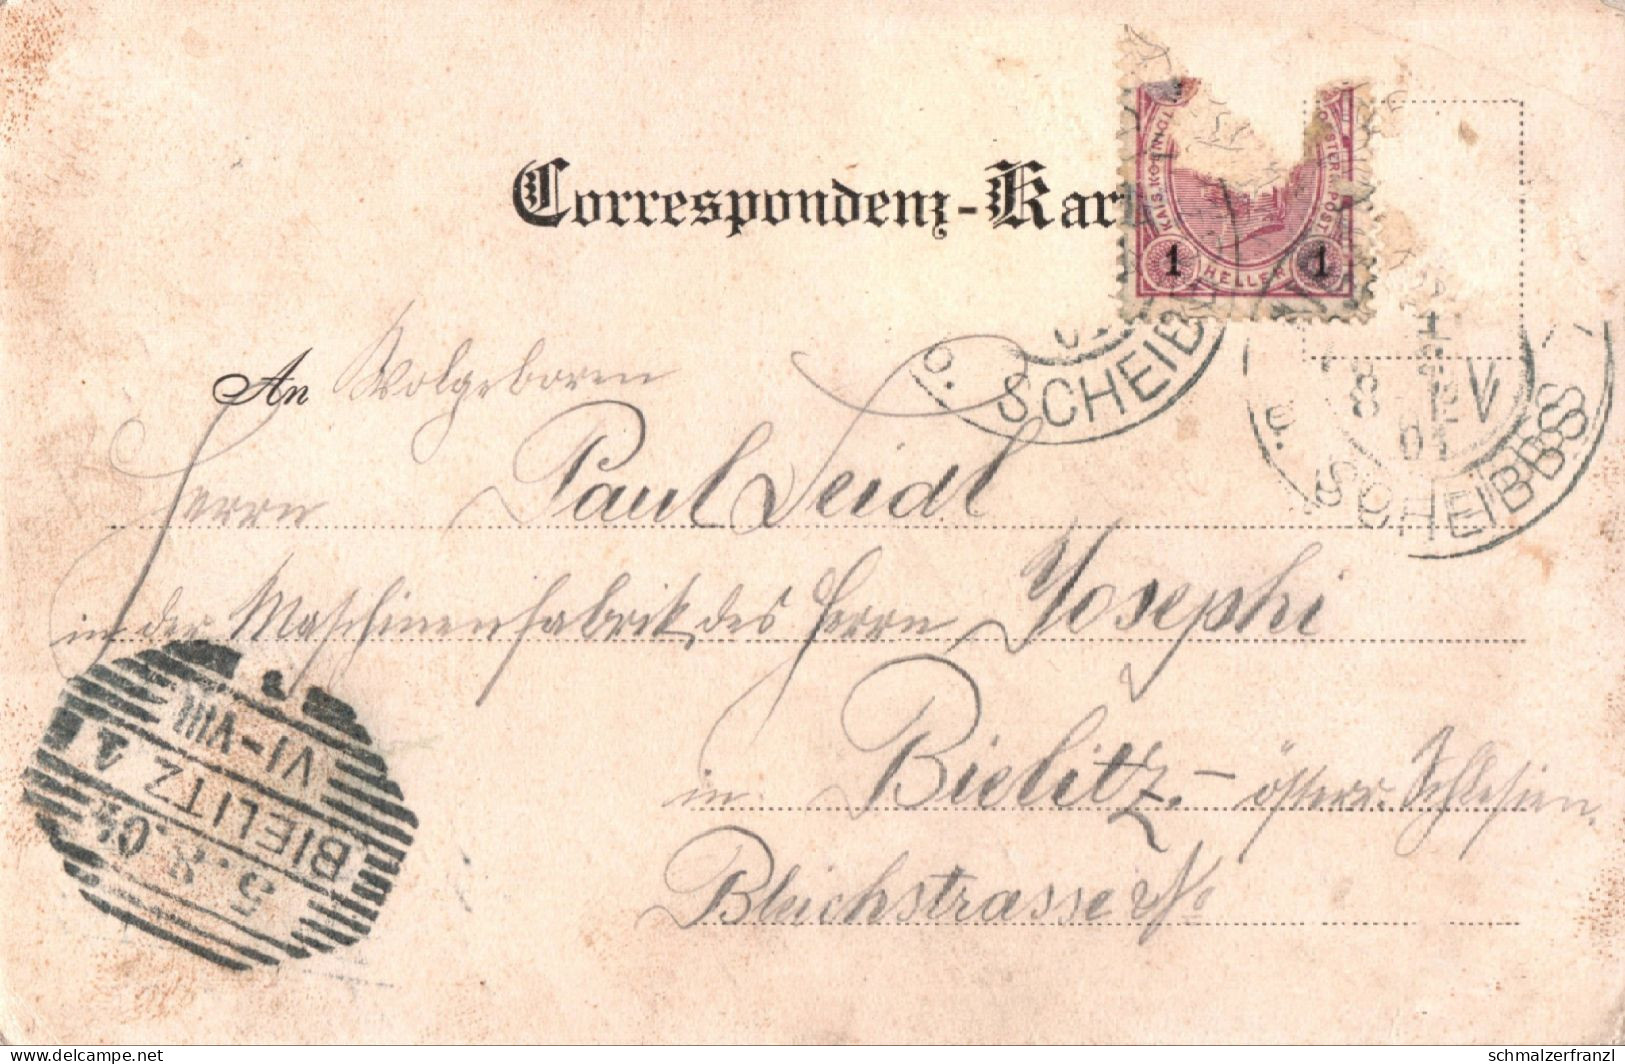 Correspondenz-Kar
KAIS. KOENIGL. OESTERR. POST
1 HELLER 1
SCHEIBBS
SCHEIBBS
An Wolgeboren
Herrn Paul Seidl
in der Maschinenfabrik des Herrn Josephi
in Bielitz. - österr. Schlesien.
Bleichstrasse No
BIELITZ 1
VI-VIII
delcampe.net
schmalzerfranzl